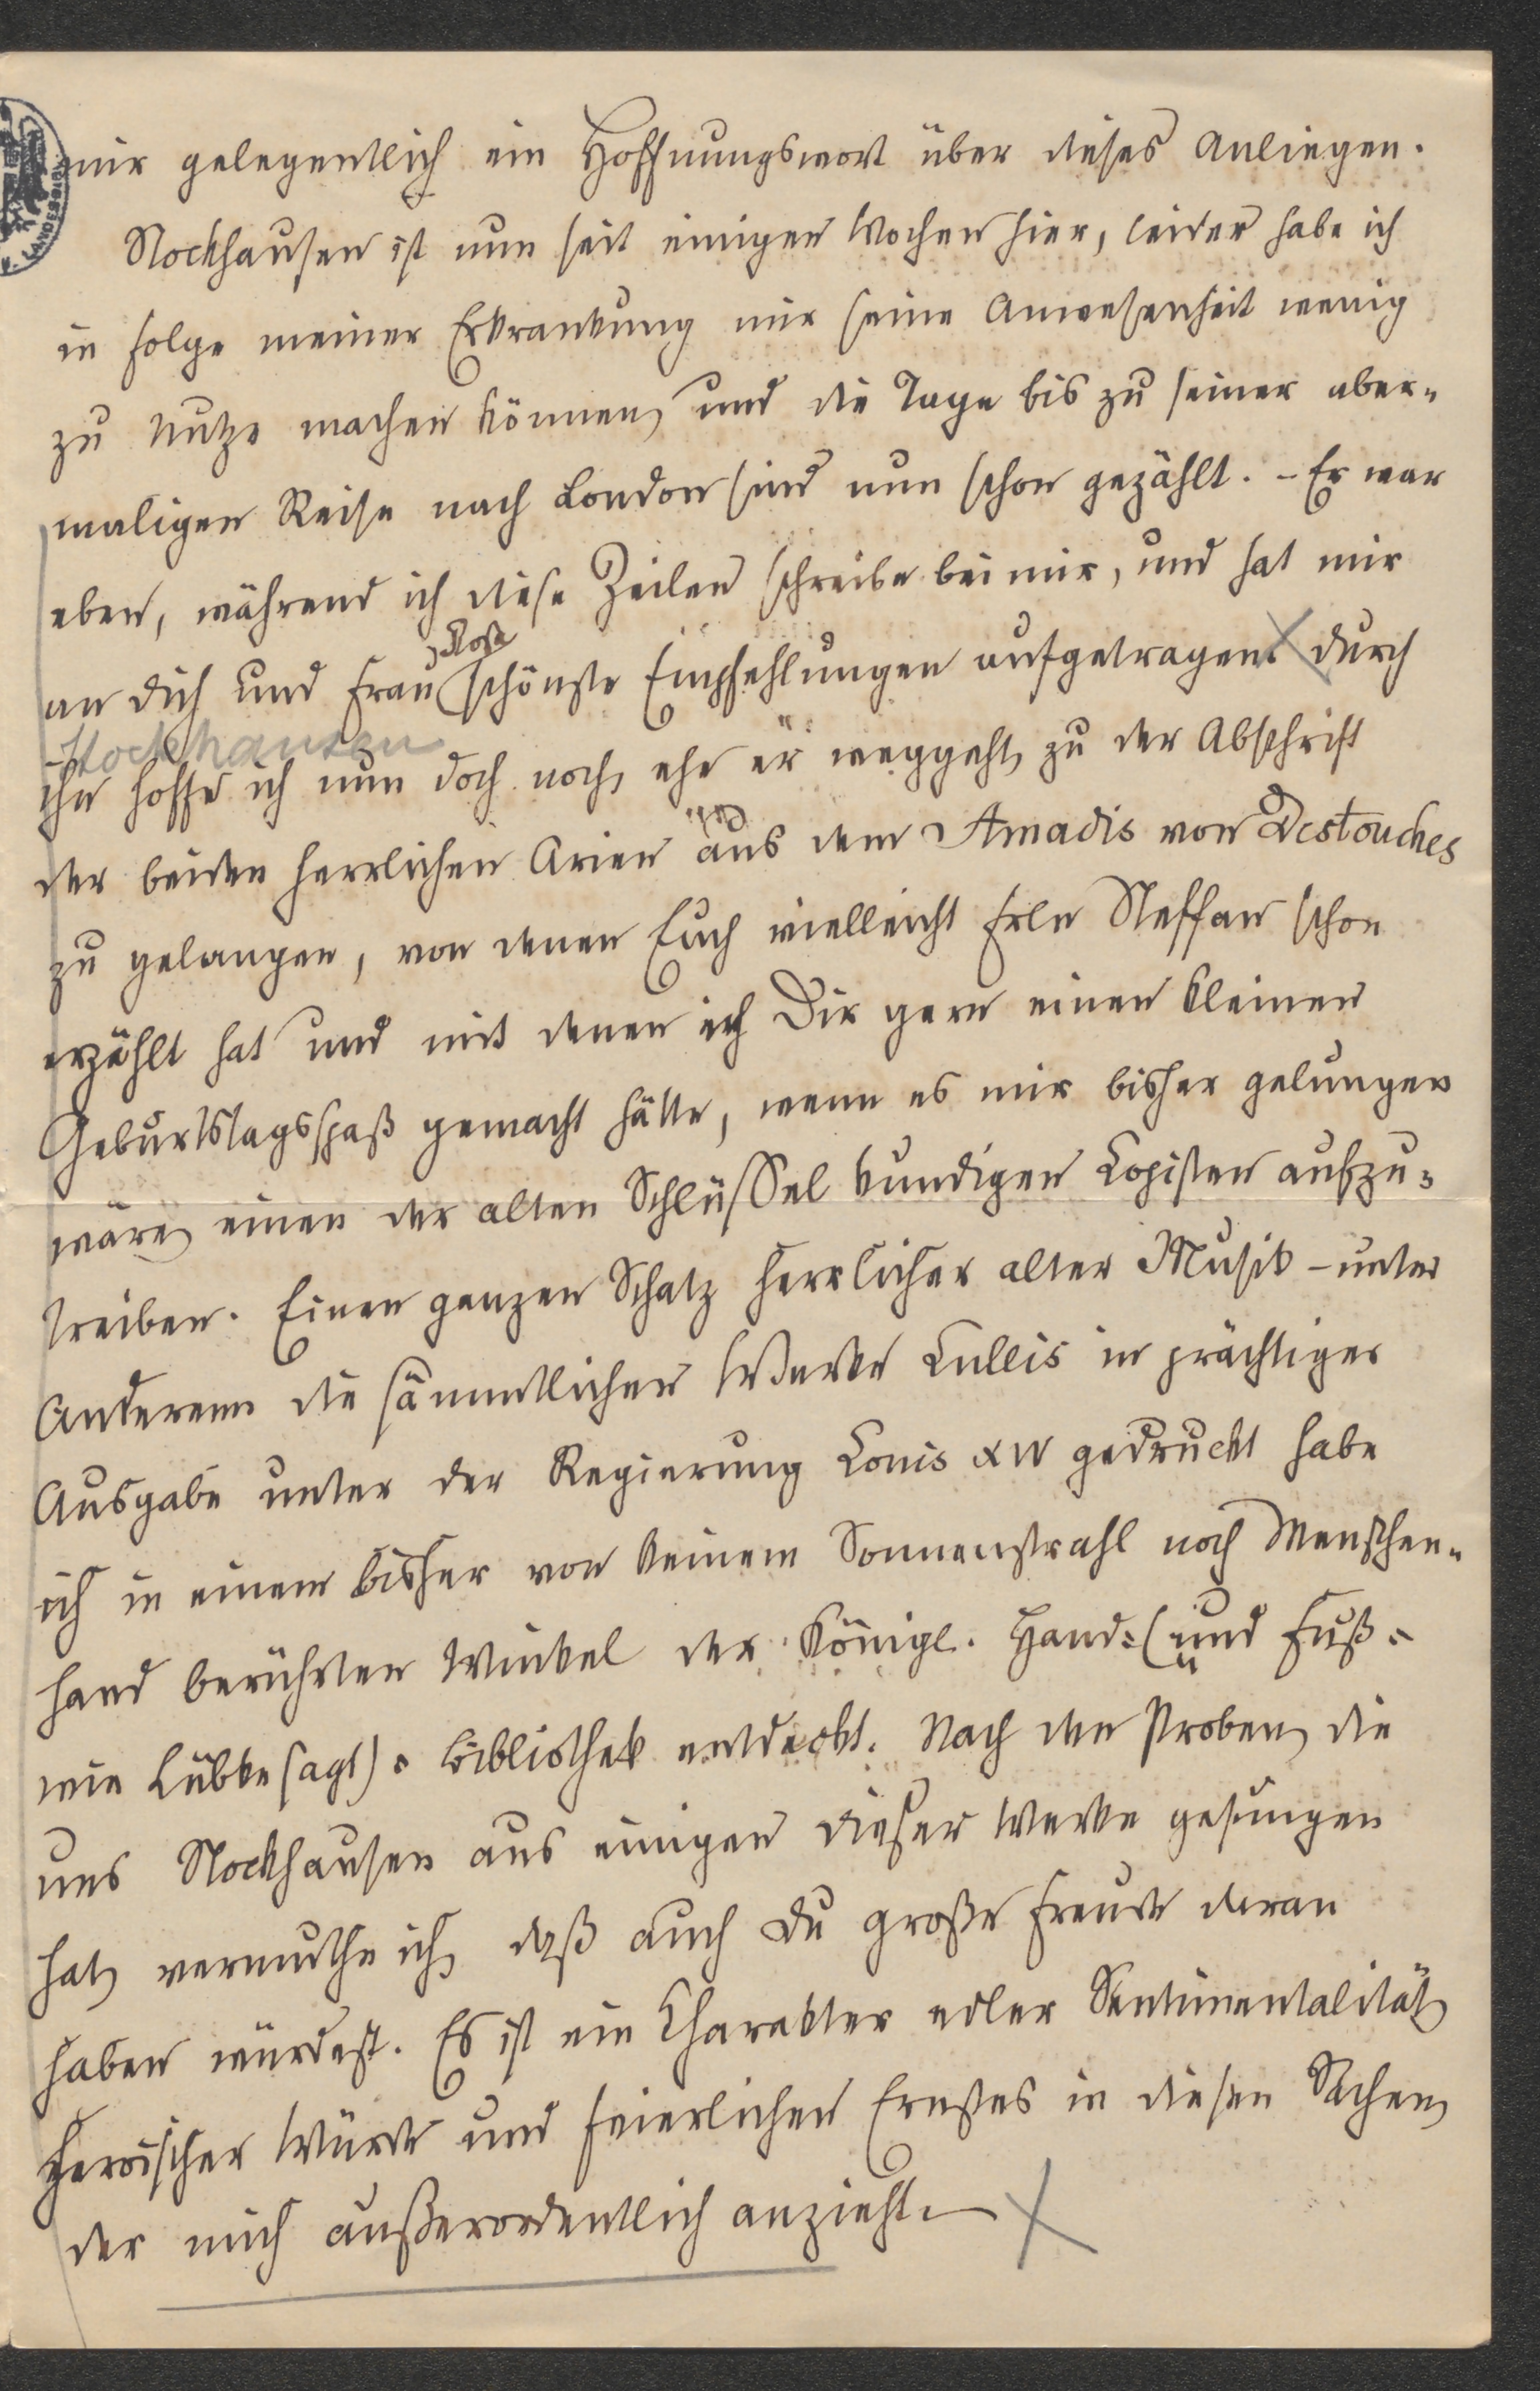 mir gelegentlich ein Hoffnungswort über dieses Anliegen.
Stockhausen ist nun seit einigen Wochen hier, leider habe ich
in Folge meiner Erkrankung mir seine Anwesenheit wenig
zu Nutze machen können, und die Tage bis zu seiner aber-
maligen Reise nach London sind nun schon gezählt. – Er war
eben, während ich diese Zeilen schreibe bei mir, und hat mir
an Dich und Frau schönste Empfehlungen aufgetragen. Durch
Stockhausen
ihn hoffe ich nun doch noch, ehe er weggeht, zu der Abschrift
der beiden herrlichen Arien aus dem Amadis von Destouches
zu gelangen, von denen Euch vielleicht Frln Steffan schon
erzählt hat und mit denen ich Dir gern einen kleinen
Geburtstagsspaß gemacht hätte, wenn es mir bisher gelungen
wäre, einen der alten Schlüssel kundigen Copisten aufzu-
treiben. Einen ganzen Schatz herrlicher alter Musik – unter
Anderem die sämmtlichen Werke Lullis in prächtiger
Ausgabe unter der Regierung Louis XIV gedruckt habe
ich in einem bisher von keinem Sonnenstrahl noch Menschen-
hand berührten Winkel der Königl. Hand- (und Fuß-
wie Lübke sagt) - Bibliothek entdeckt. Nach den Proben, die
uns Stockhausen aus einigen dieser Werke gesungen
hat, vermuthe ich, daß auch Du große Freude daran
haben würdest. Es ist ein Charakter edler Sentimentalität,
heroischer Würde und feierlichen Ernstes in diesen Sachen,
der mich außerordentlich anzieht. –